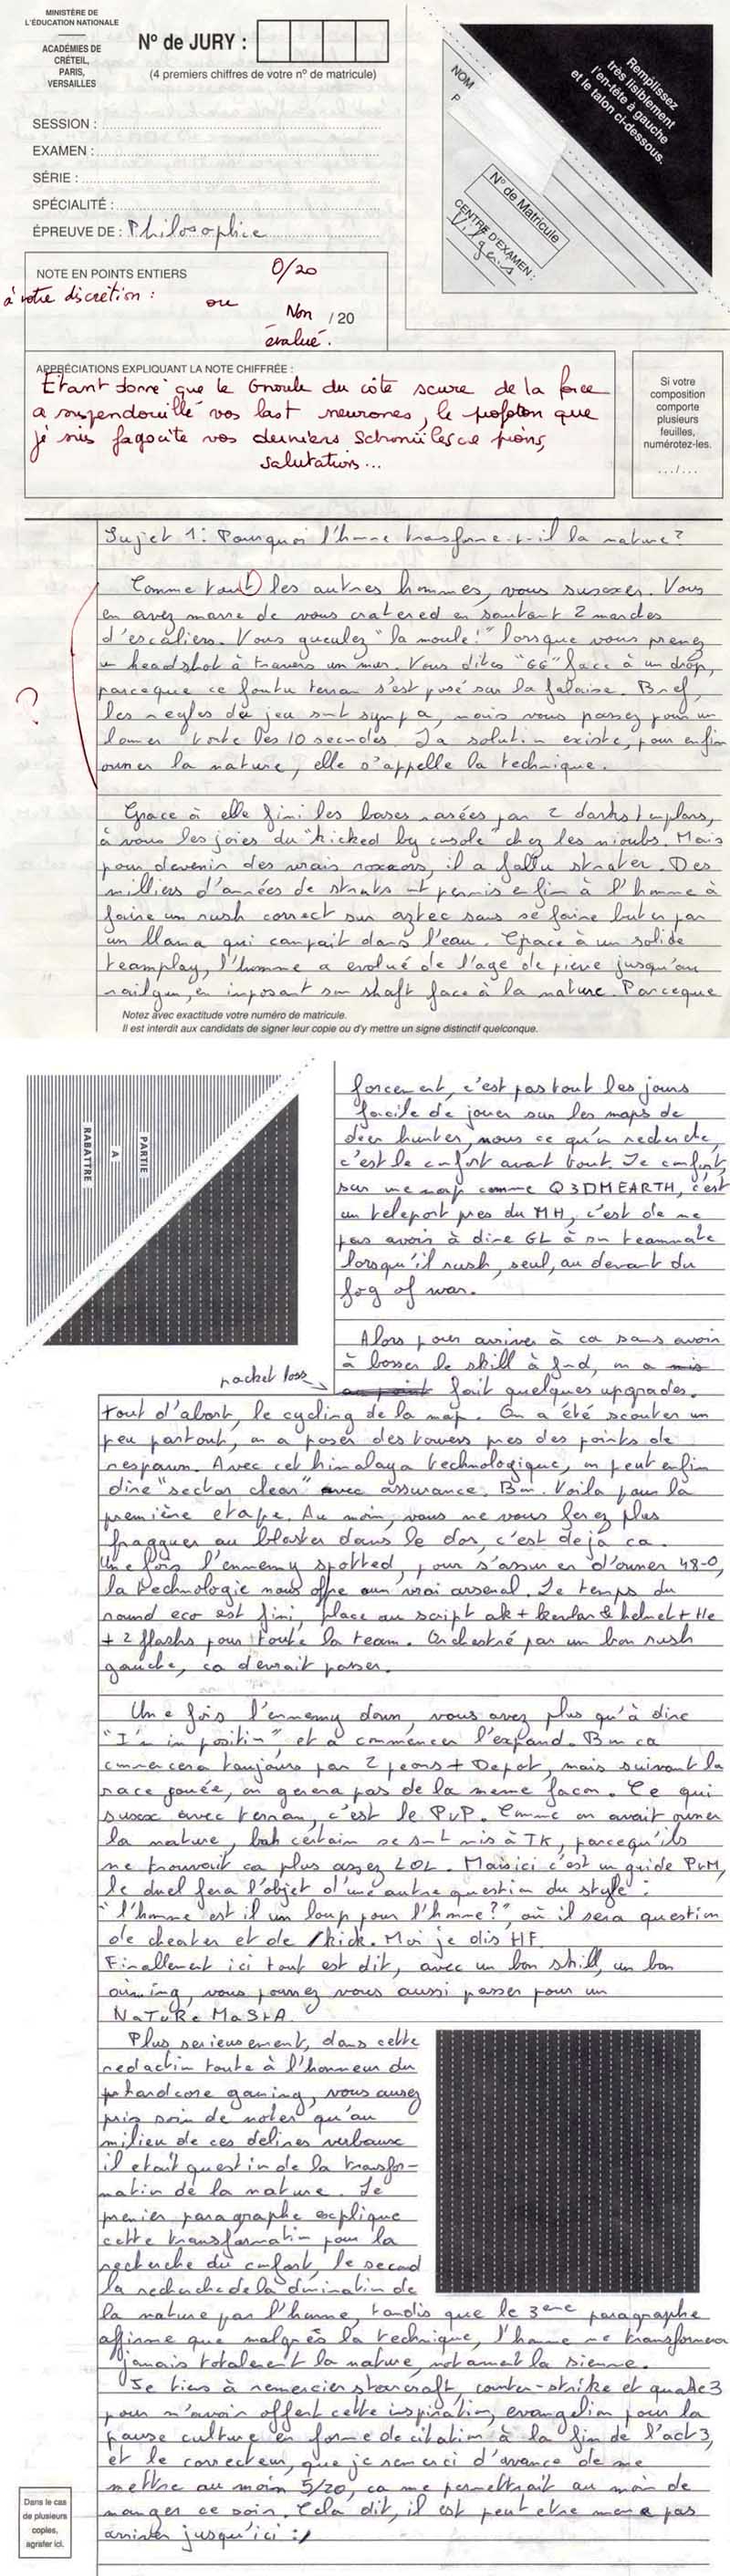 MINISTÈRE DE
L'ÉDUCATION NATIONALE
ACADÉMIES DE
CRÉTEIL,
PARIS,
VERSAILLES
N° de JURY :
(4 premiers chiffres de votre n° de matricule)
SESSION :
EXAMEN :
SÉRIE :
SPÉCIALITÉ :
ÉPREUVE DE : Philosophie
NOM
P
Remplissez
très lisiblement
l'en-tête à gauche
et le talon ci-dessous.
N° de Matricule
CENTRE D'EXAMEN :
NOTE EN POINTS ENTIERS
0/20
à votre discrétion :
ou
Non / 20
évalué.
APPRÉCIATIONS EXPLIQUANT LA NOTE CHIFFRÉE :
Étant donné que le Gnoule du côté scure de la force
a suspendouillé vos last neurones, le profoton que
je suis fagocite vos derniers
salutations...
Si votre
composition
comporte
plusieurs
feuilles,
numérotez-les.
.../...
Sujet 1 : Pourquoi l'homme transforme-t-il la nature ?
?
Comme tout les autres hommes, vous suxoxez. Vous
en avez marre de vous cratered en sautant 2 marches
d'escaliers. Vous gueulez "la moule!" lorsque vous prenez
un headshot à travers un mur. Vous dites "GG" face à un drop,
parceque ce foutu terran s'est posé sur la falaise. Bref,
les regles du jeu sont sympa, mais vous passez pour un
lamer toute les 10 secondes. La solution existe, pour enfin
owner la nature, elle s'appelle la technique.
Grace à elle fini les bases rasées par 2 darks templars,
à vous les joies du "kicked by console" chez les nioubs. Mais
pour devenir des vrais roxxors, il a fallu strater. Des
milliers d'années de strats ont permis enfin à l'homme à
faire un rush correct sur aztec sans se faire buter par
un llama qui campait dans l'eau. Grace à un solide
teamplay, l'homme a evolué de l'age de pierre jusqu'au
railgun, en imposant son shaft face à la nature. Parceque
Notez avec exactitude votre numéro de matricule.
Il est interdit aux candidats de signer leur copie ou d'y mettre un signe distinctif quelconque.
PARTIE
A
RABATTRE
forcement, c'est pas tout les jours
facile de jouer sur les maps de
deer hunter, nous ce qu'on recherche,
c'est le confort avant tout. Le confort,
sur une map comme Q3DMEARTH, c'est
un teleport pres du MH, c'est de ne
pas avoir à dire GL à son teammate
lorsqu'il rush, seul, au devant du
fog of war.
Alors pour arriver à ca sans avoir
à bosser le skill à fond, on a mis
packet loss
au point fait quelques upgrades.
tout d'abort, le cycling de la map. On a été scouter un
peu partout, on a poser des towers pres des points de
respawn. Avec cet himalaya technologique, on peut enfin
dire "sector clear" avec assurance. Bon. Voila pour la
première etape. Au moin, vous ne vous ferez plus
fragguer au blaster dans le dos, c'est deja ca.
Une fois l'ennemy spotted, pour s'assurer d'owner 48-0,
la technologie nous offre un vrai arsenal. Le temps du
round eco est fini, place au script ak + kevlar & helmet + He
+ 2 flashs pour toute la team. Orchestré par un bon rush
gauche, ca devrait passer.
Une fois l'ennemy down, vous avez plus qu'à dire
"I'm in position", et à commencer l'expand. Bon ca
commencera toujours par 2 peons + Depot, mais suivant la
race jouée, on gerera pas de la meme facon. Ce qui
suxox avec terran, c'est le PvP. Comme on avait owner
la nature, bah certain se sont mis à TK, parcequ'ils
ne trouvait ca plus assez LOL. Mais ici c'est un guide PvM,
le duel fera l'objet d'une autre question du style :
"l'homme est il un loup pour l'homme?", où il sera question
de cheater et de /kick. Moi je dis HF.
Finallement ici tout est dit, avec un bon skill, un bon
timing, vous pourrez vous aussi passer pour un
NaTuRe MaStA.
Plus serieusement, dans cette
redaction toute à l'honneur du
hardcore gaming, vous aurez
pris soin de noter qu'au
milieu de ces delires verbaux
il etait question de la transfor-
mation de la nature. Le
premier paragraphe explique
cette transformation pour la
recherche du confort, le second
la recherche de la domination de
la nature par l'homme, tandis que le 3eme paragraphe
affirme que malgrès la technique, l'homme ne transformera
jamais totalement la nature, notament la sienne.
Je tiens à remercier starcraft, counter-strike et quake 3
pour m'avoir offert cette inspiration, evangelion pour la
pause culture en forme de citation à la fin de l'act 3,
et le correcteur, que je remerci d'avance de me
mettre au moin 5/20, ca me permettrait au moin de
manger ce soir. Cela dit, il est peut etre meme pas
arriver jusqu'ici :/
Dans le cas
de plusieurs
copies,
agrafer ici.